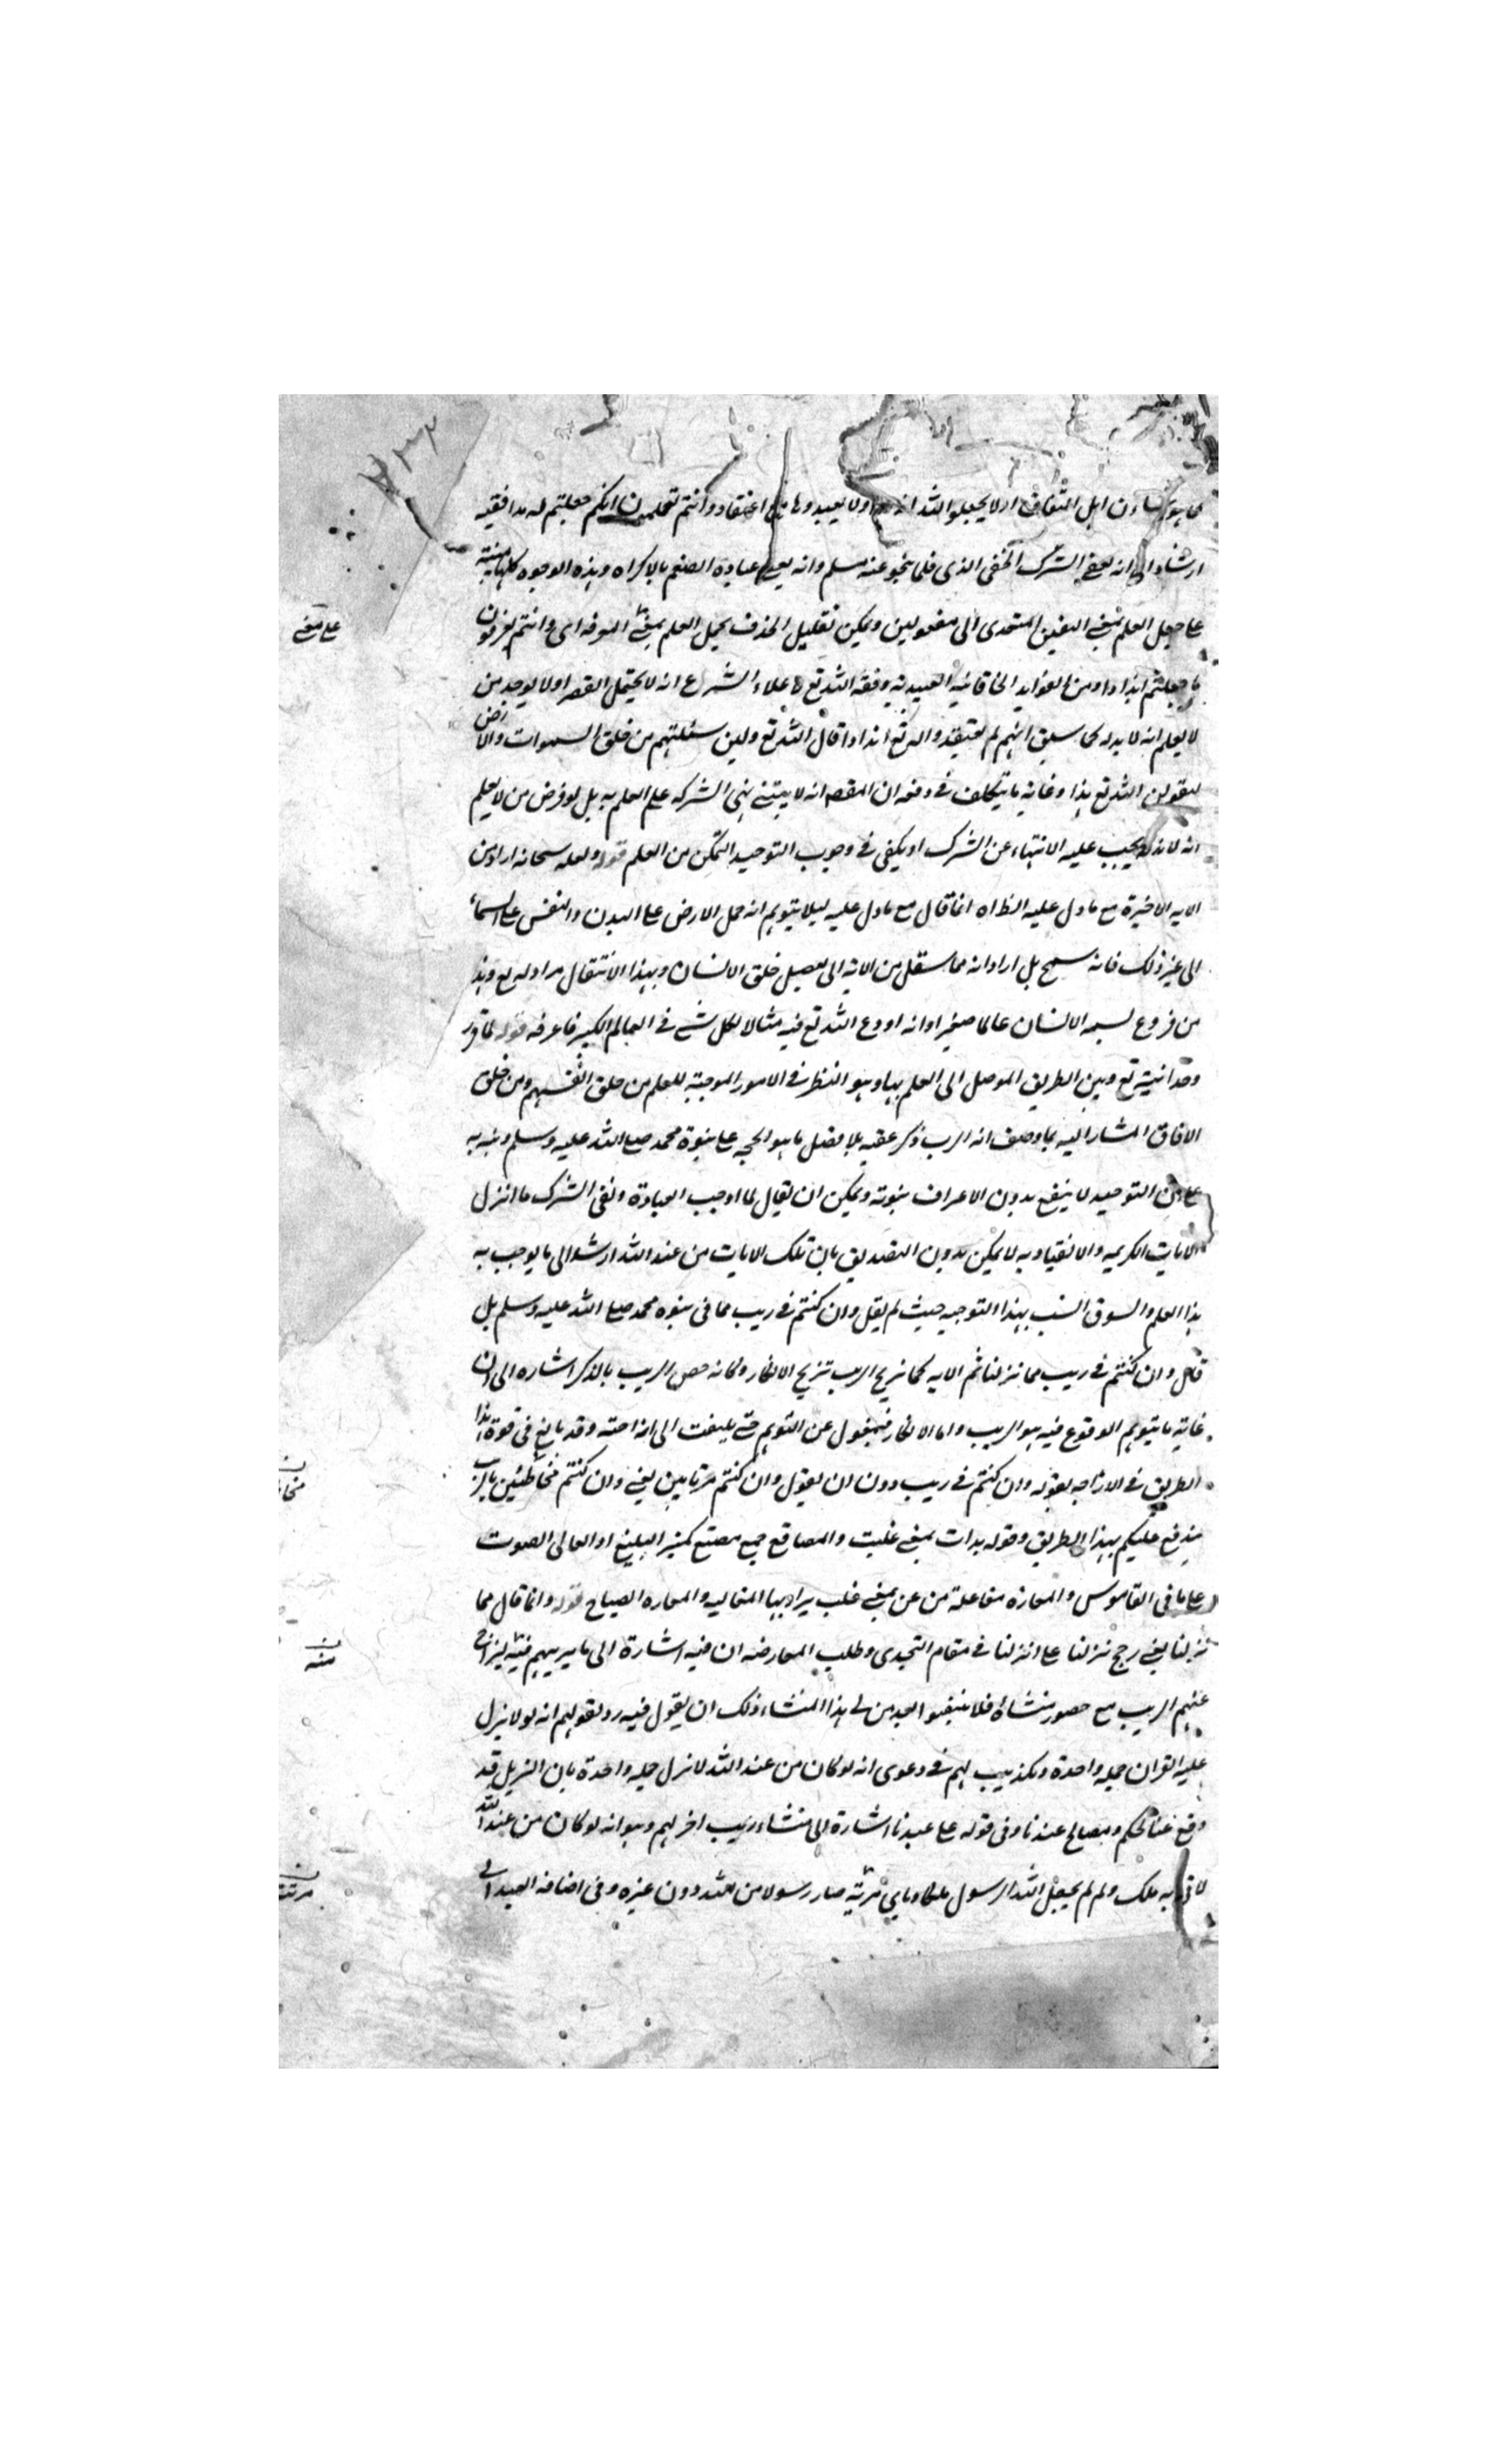 كما هو شان اهل النفاق او لا يجعلوا لله اندادا ولا يعبدوها اعتقاد وانتم تعلمون انكم جعلتم له ندا ففيه
ارشاد الى انه يعفى الشرك الخفى الذى قلما ينجو عنه مسلم وانه يعفى عبادة الصنم بالاكراه وهذه الوجوه كلها مبنية
على جعل العلم بمعنى اليقين المتعدى الى مفعولين ويمكن تقليل الحذف بحمل العلم بمعنى المعرفة اى وانتم تعرفون
ما جعلتم اندادا ومن الفوايد الخاقانية العبيدية وفقه الله تع لاعلاء الشرع انه لا يحتمل القصر اولا يوجد من
لا يعلم انه لا ند له كما سبق انهم لم يعتقدوا له تع اندادا قال الله تع ولئن سئلتهم من خلق السموات والارض
ليقولن الله تع هذا وغاية ما يتكلف فى دفعه ان المقصد انه لا يبتنى نهى الشرك على العلم به بل لو فرض من لا يعلم
انه لا ند له يجب عليه الانتهاء عن الشرك او يكفى فى وجوب التوحيد التمكن من العلم قوله ولعله سبحانه اراد من
الايه الاخيرة مع ما دل عليه الظاه انما قال مع ما دل عليه ليلا يتوهم انه حمل الارض على البدن والنفس على السماء
الى غير ذلك فانه سمج بل اراد انه مما ينتقل من الاية الى تفصيل خلق الانسان وبهذا الانتقال مراد له تع وهذا
من فروع تسمية الانسان عالما صغيرا وانه اودع الله تع فيه مثالا لكل شئ فى العالم الكبير فاعرفه قوله لما قرر
وحدانيته تع وبين الطريق الموصل الى العلم بها وهو النظر فى الامور الموجبة للعلم من خلق انفسهم ومن خلق
الافاق المشار اليه بما وصف انه الرب ذكر عقيبه بلا فصل ما هو الحجه على نبوة محمد صلى الله عليه وسلم ونبه به
على ان التوحيد لا ينفع بدون الاعراف بنبوته ويمكن ان يقال لما اوجب العبادة ونفى الشرك ما انزل
الايات الكريمه والانقياد به لا يمكن بدون التصديق بان تلك الايات من عند الله ارشد الى ما يوجب به
هذا العلم والسوق انسب بهذا التوجيه حيث لم يقل وان كنتم فى ريب مما فى نبوه محمد صلى الله عليه وسلم بل
قال وان كنتم فى ريب مما نزلنا ثم الايه كما تزيح الريب تزيح الانكار وكانه خص الريب بالذكر اشاره الى ان
غاية ما يتوهم الوقوع فيه هو الريب واما الانكار فبمعزل عن التوهم حتى يلتفت الى ازاحته وقد بالغ فى قوة هذا
الطريق فى الازاحه بقوله وان كنتم فى ريب دون ان يقول وان كنتم مرتابين يعنى وان كنتم مخاطين بالريب
يندفع عليكم بهذا الطريق وقوله بذت بمعنى غلبت والمصاقع جمع مصقع كمنبر البليغ او العالى الصوت
على ما فى القاموس والمعازة مفاعلة من عز بمعنى غلب يراد بها المغالبه والمعاره الصياح قوله وانما قال مما
نزلنا يعنى رجح نزلنا على انزلنا فى مقام التحدى وطلب المعارضه ان فيه اشارة الى ما يريبهم
عنهم الريب مع حضور منشائه فلا ينبغى ذلك ان يقول فيه رد لقولهم انه لولا نزل
عليه القران جملة واحدة وتكذيب لهم فى دعوى انه لو كان من عند الله لانزل جملة واحدة بان التنزيل قد
وقع ومصالح عندنا وفى قوله على عبدنا اشارة الى منشاء ريب اخر لهم وهو انه لو كان من عند الله
لاتى به ملك ولم لم يجعل الله الرسول ملكا وباى مزية صار رسولا من الله دون غيره وفى اضافة العبد الى
على معنى
منه